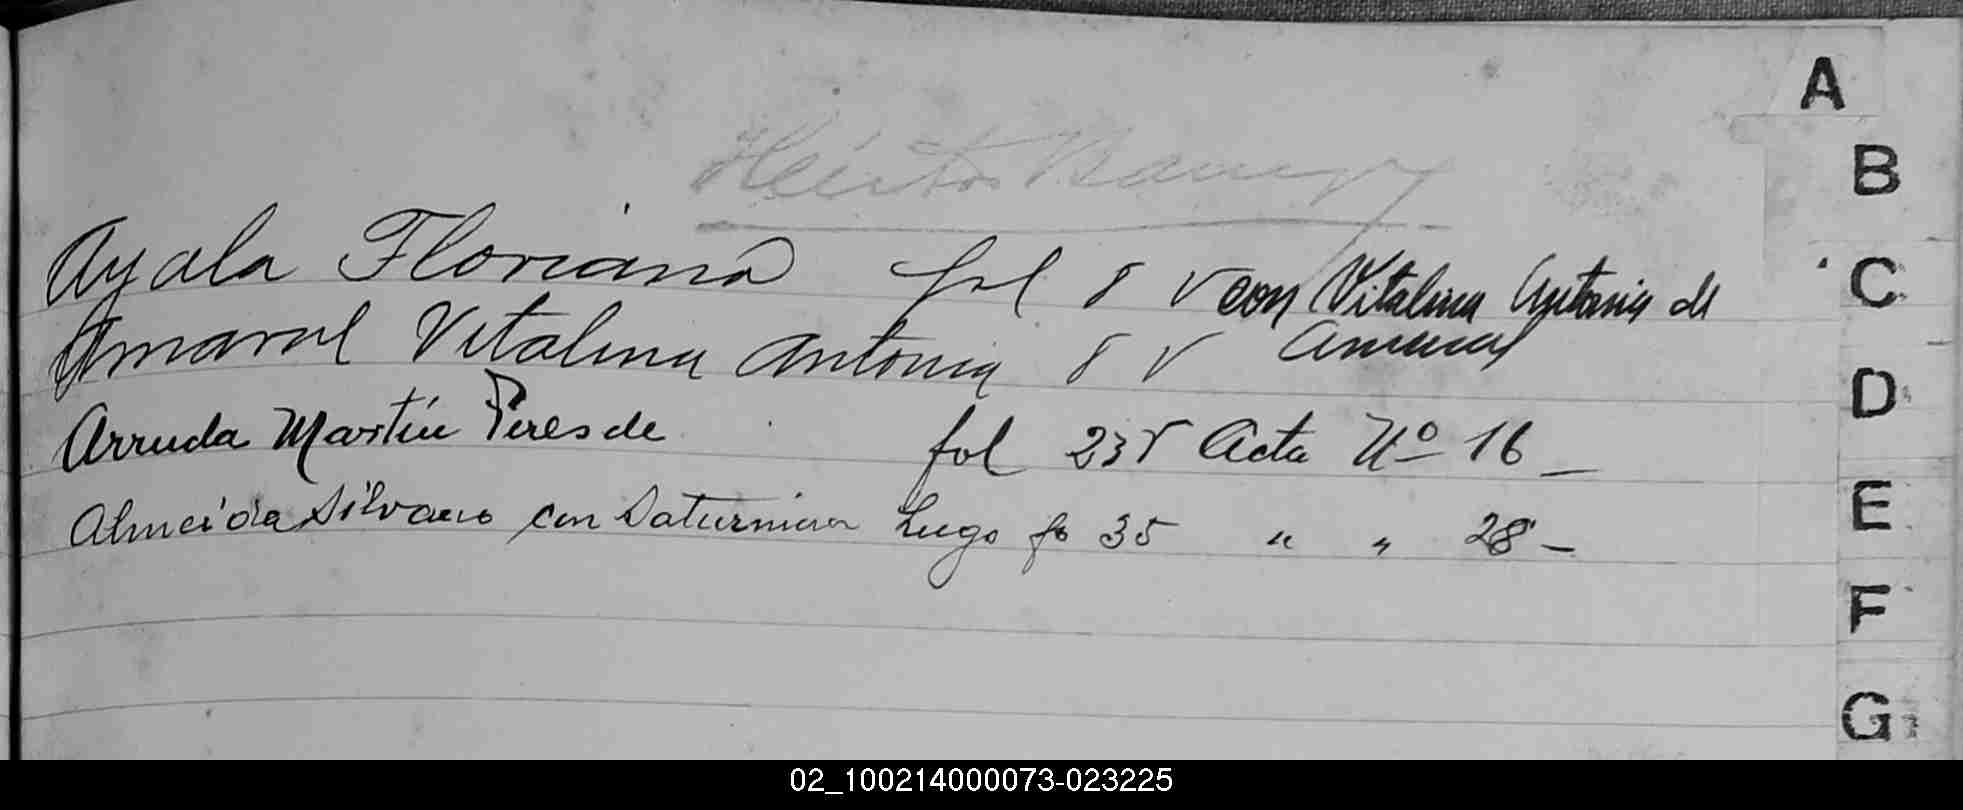 A
B
Ayala Floriana fol 8 v con Vitalina Antonia de
C
Amaral Vitalina Antonia 8 v Amaral
D
Arruda Martín Peres de fol 23 v Acta Nº 16 —
E
Almeida Silvano con Saturnina Lugo fo 35 " " 28 —
F
G
02_100214000073-023225